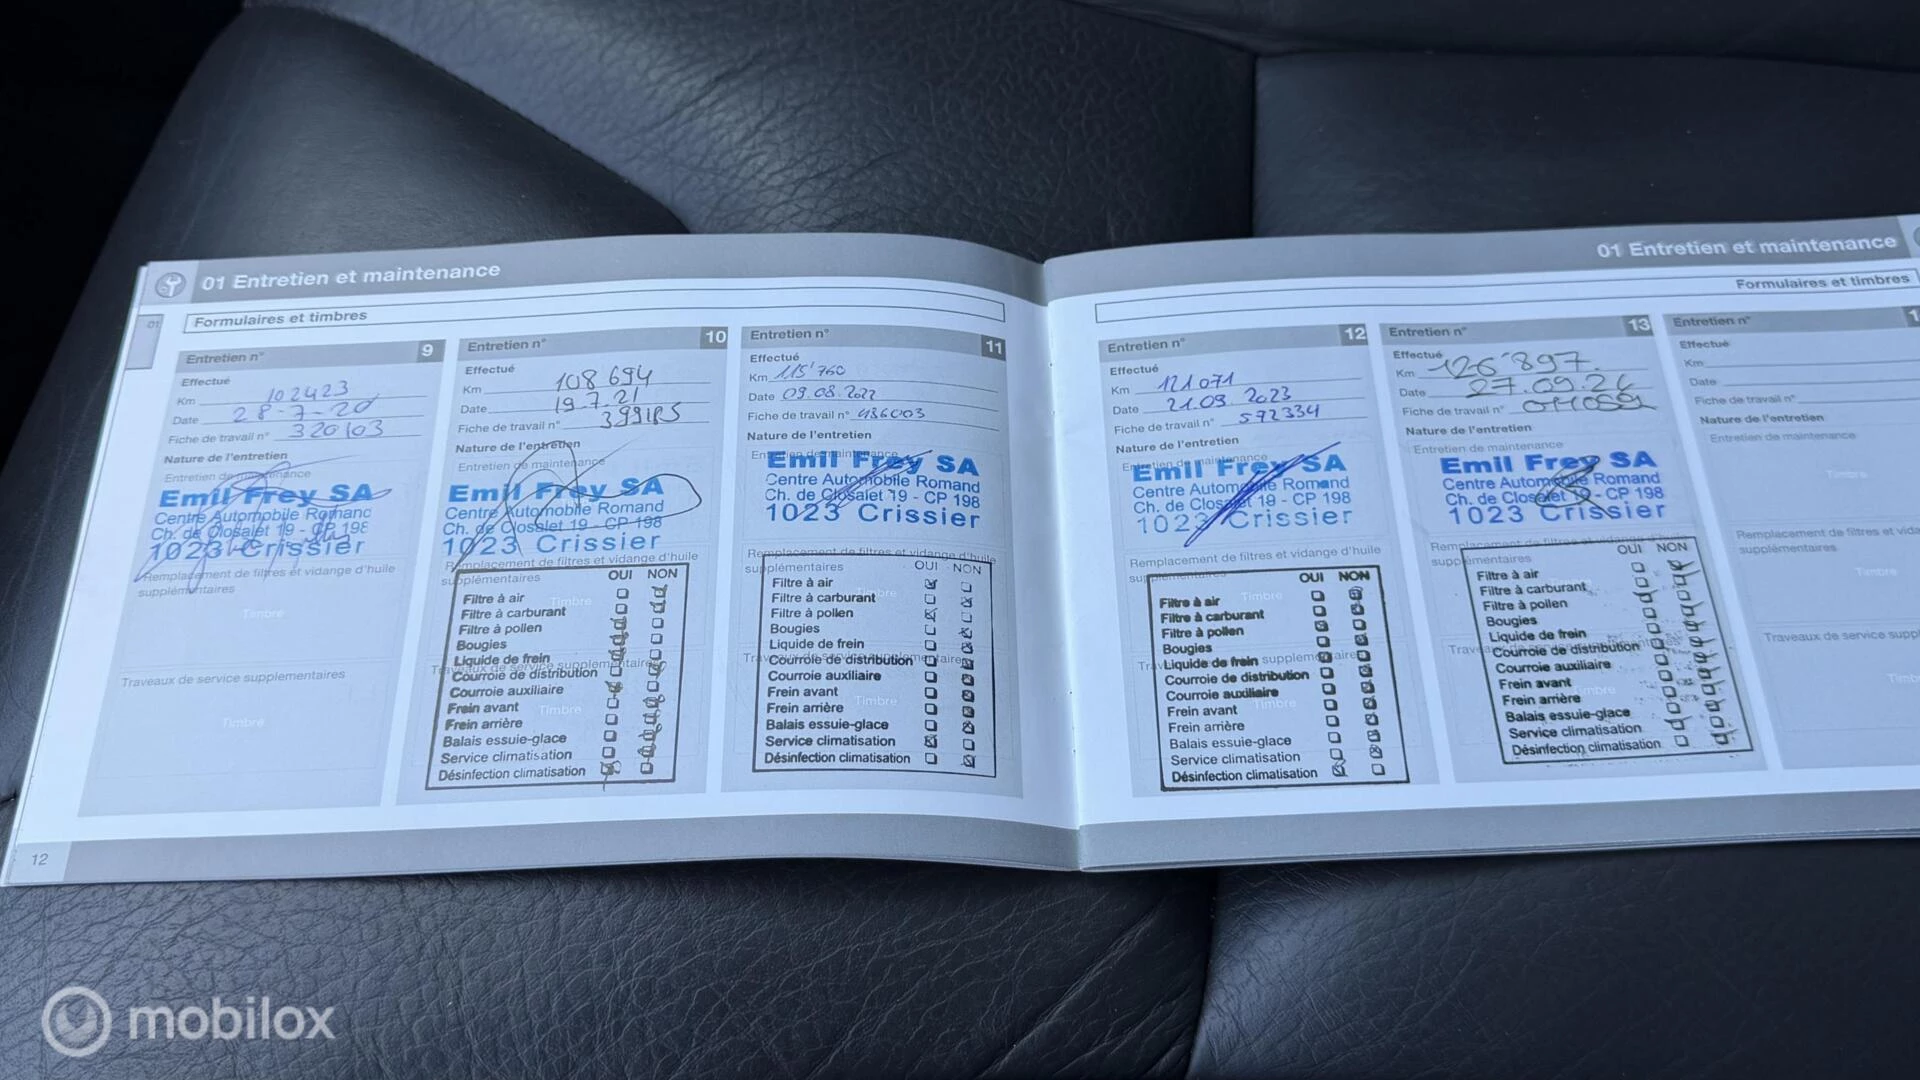 01 Entretien et maintenance
Formulaires et timbres
Entretien n° 9
Effectué
Km 102423
Date 28-7-20
Fiche de travail n° 320103
Nature de l'entretien
Entretien de maintenance
Emil Frey SA
Centre Automobile Romand
Ch. de Closalet 19 - CP 198
1023 Crissier
Remplacement de filtres et vidange d'huile
supplémentaires
Timbre
Traveaux de service supplementaires
Timbre
12
Entretien n° 10
Effectué
Km 108 694
Date 19.7.21
Fiche de travail n°
Nature de l'entretien
Entretien de maintenance
Emil Frey SA
Centre Automobile Romand
Ch. de Closalet 19 - CP 198
1023 Crissier
Remplacement de filtres et vidange d'huile
supplémentaires
OUI NON
Filtre à air
Timbre
Filtre à carburant
Filtre à pollen
Bougies
Liquide de frein
Traveaux de service supplementaires
Courroie de distribution
Courroie auxiliaire
Frein avant
Timbre
Frein arrière
Balais essuie-glace
Service climatisation
Désinfection climatisation
Entretien n° 11
Effectué
Km 115'760
Date 09.08.2022
Fiche de travail n° 486003
Nature de l'entretien
Entretien de maintenance
Emil Frey SA
Centre Automobile Romand
Ch. de Closalet 19 - CP 198
1023 Crissier
Remplacement de filtres et vidange d'huile
supplémentaires
OUI NON
Filtre à air
Filtre à carburant
Filtre à pollen
Bougies
Liquide de frein
Courroie de distribution
Courroie auxiliaire
Frein avant
Frein arrière
Balais essuie-glace
Service climatisation
Désinfection climatisation
01 Entretien et maintenance
Formulaires et timbres
Entretien n° 12
Effectué
Km 121071
Date 21.09.2023
Fiche de travail n° 592334
Nature de l'entretien
Entretien de maintenance
Emil Frey SA
Centre Automobile Romand
Ch. de Closalet 19 - CP 198
1023 Crissier
Remplacement de filtres et vidange d'huile
supplémentaires
OUI NON
Filtre à air
Timbre
Filtre à carburant
Filtre à pollen
Bougies
Liquide de frein
Courroie de distribution
Courroie auxiliaire
Frein avant
Timbre
Frein arrière
Balais essuie-glace
Service climatisation
Désinfection climatisation
Entretien n° 13
Effectué
Km 126'897.
Date 27.09.24
Fiche de travail n°
Nature de l'entretien
Entretien de maintenance
Emil Frey SA
Centre Automobile Romand
Ch. de Closalet 19 - CP 198
1023 Crissier
Remplacement de filtres et vidange d'huile
supplémentaires
OUI NON
Filtre à air
Filtre à carburant
Filtre à pollen
Bougies
Liquide de frein
Courroie de distribution
Courroie auxiliaire
Frein avant
Frein arrière
Balais essuie-glace
Service climatisation
Désinfection climatisation
Entretien n°
Effectué
Km
Date
Fiche de travail n°
Nature de l'entretien
Entretien de maintenance
Timbre
Remplacement de filtres et
supplémentaires
Timbre
Traveaux de service
mobilox